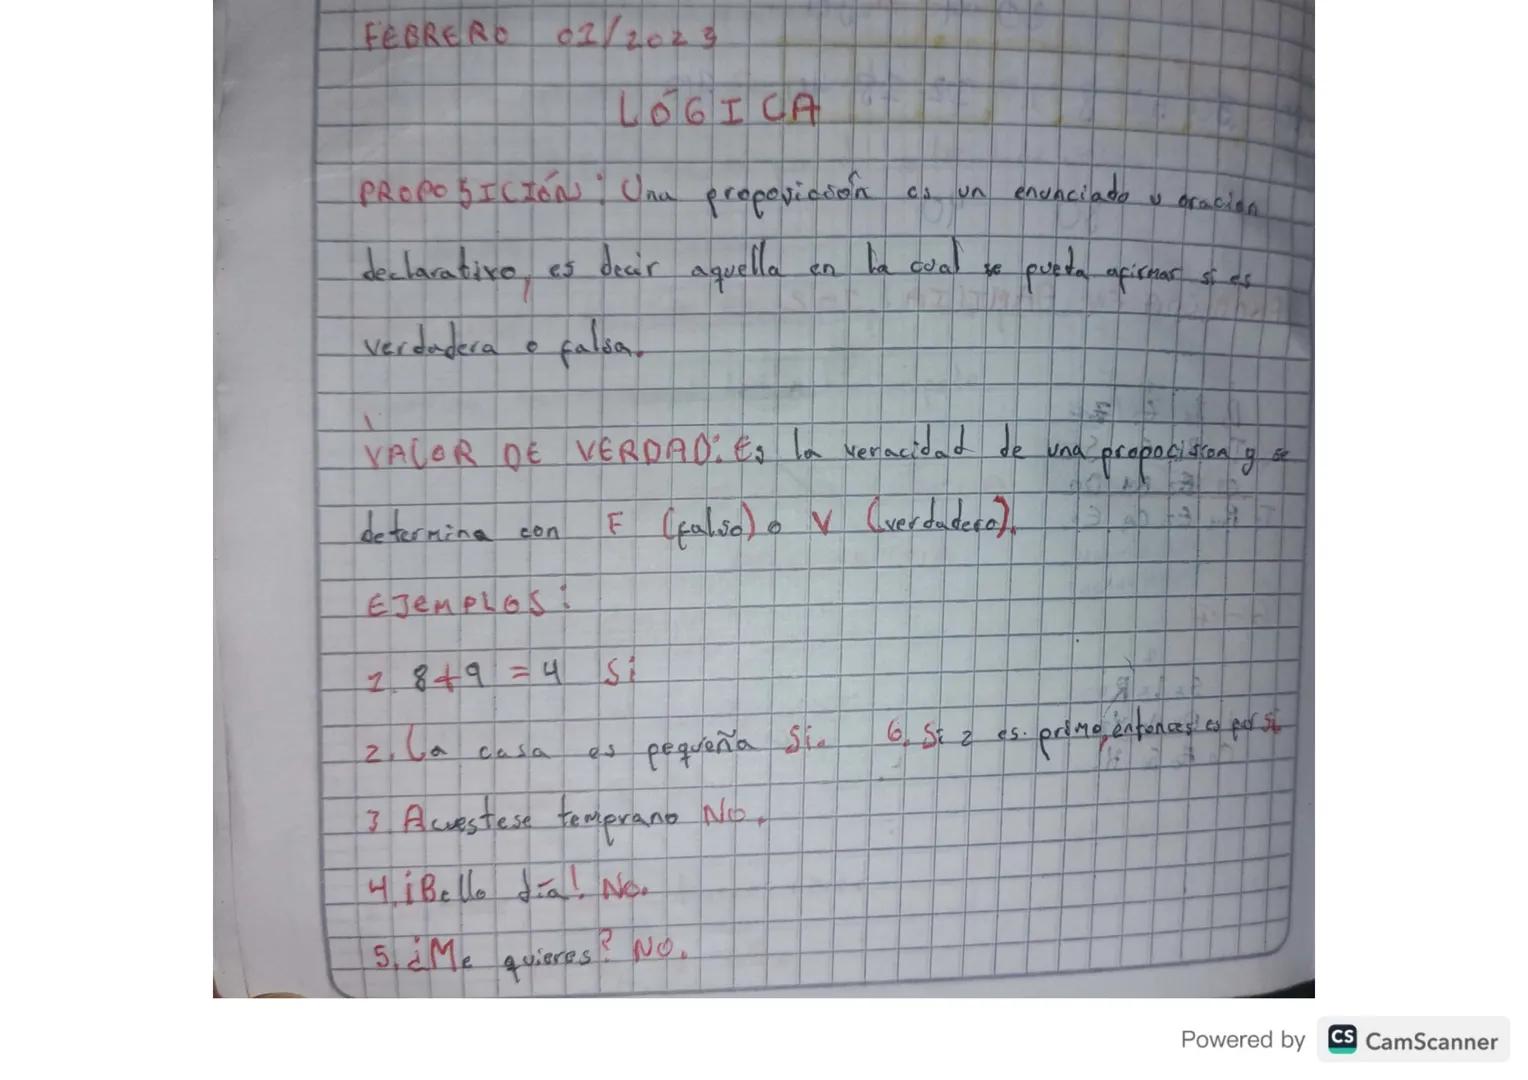 FEBRERO 01/2023
LÓGICA
PROPOSICIÓN: Una proposición es un enunciado u oración
declarativo, es decir aquella en la cual se pueda afirmar si es
verdadera o falsa.
VALOR DE VERDAD: Es la veracidad de una proposición y se
determina con F (falso) o V (verdadero).
EJEMPLOS:
1. 8+9 = 4 Si
2. La casa es pequeña Si. 6. Si 2 es primo, entonces es par si
3. Acuestese temprano No.
4. ¡Bello día! No.
5. ¿Me quieres? NO.
Powered by CS CamScanner